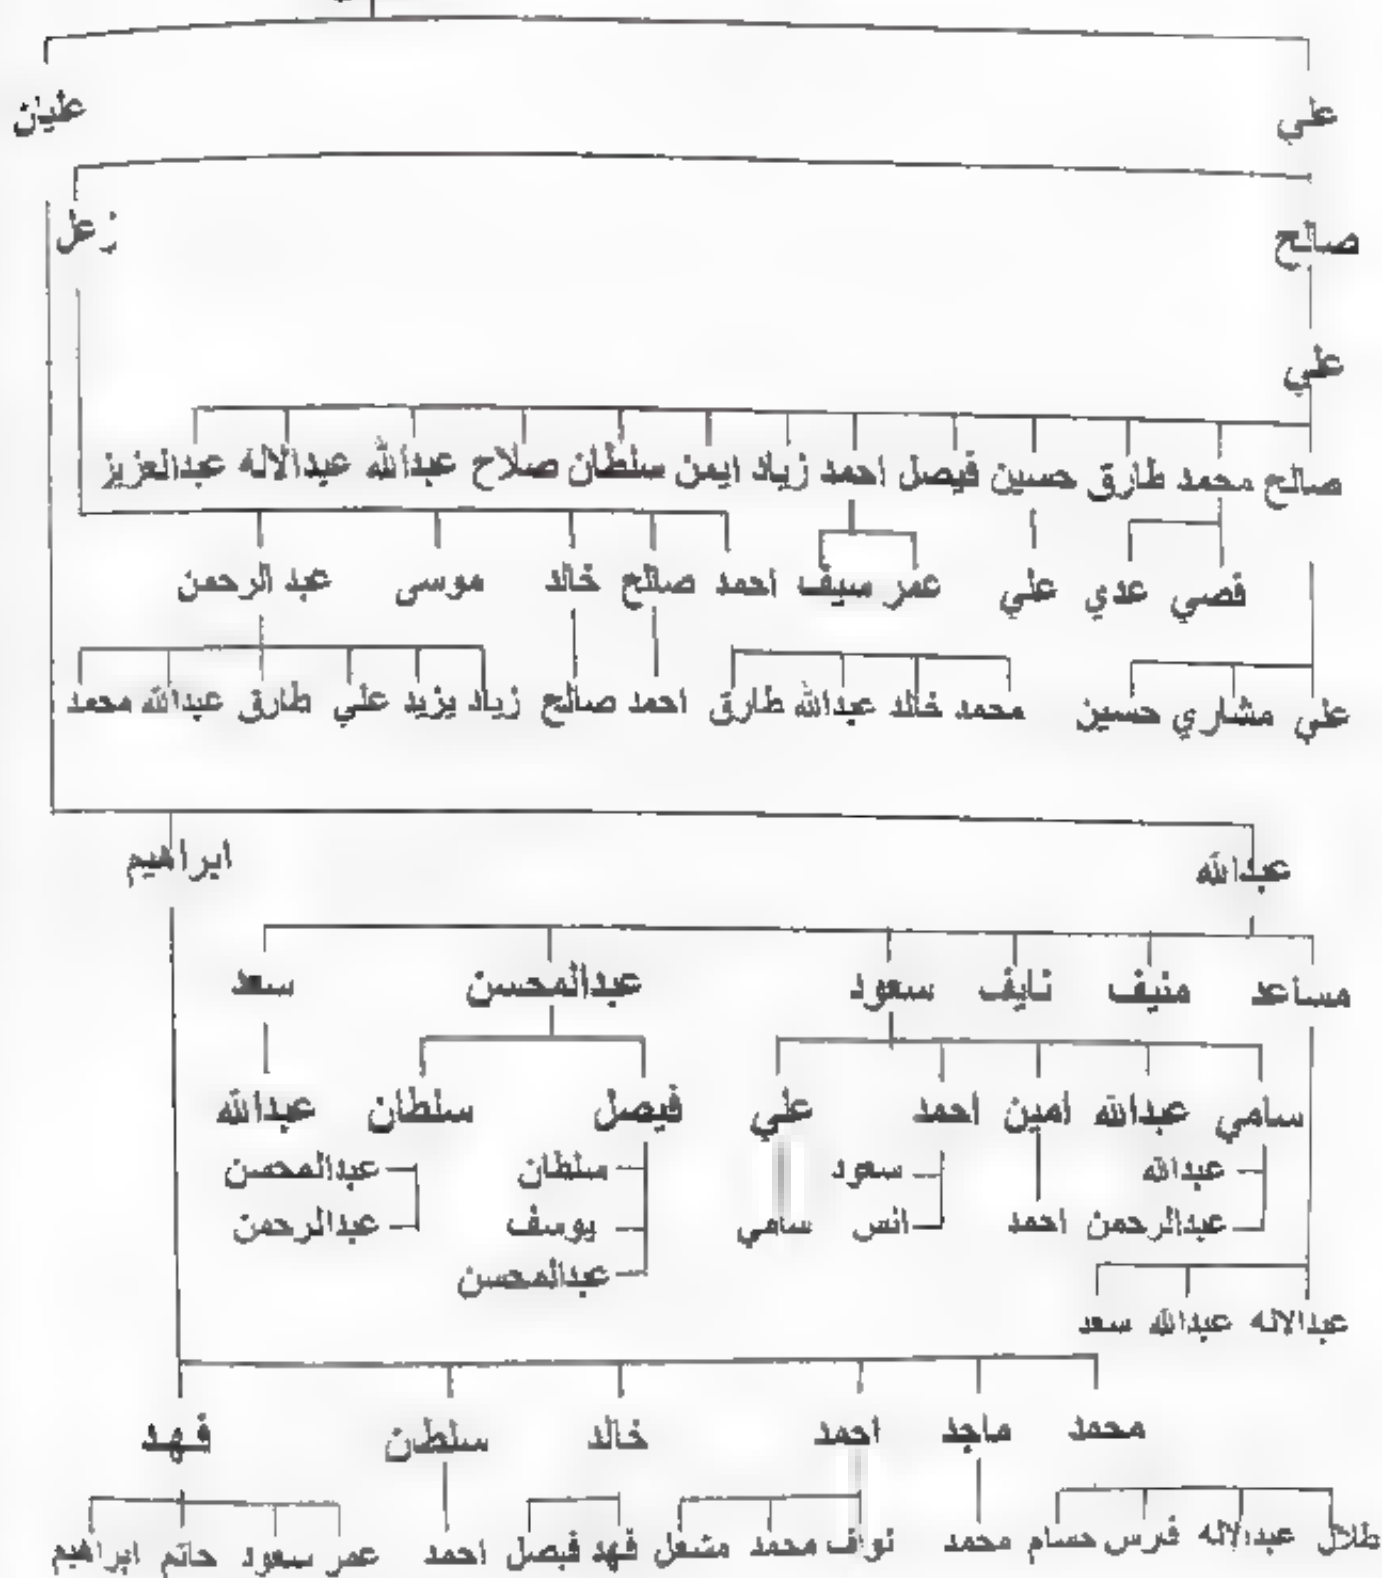 علي عليان
صالح زعل
علي
صالح محمد طارق حسين فيصل احمد زياد ايمن سلطان صلاح عبدالله عبدالاله عبدالعزيز
قصي عدي علي عمر سيف احمد صالح خالد موسى عبد الرحمن
علي مشاري حسين محمد خالد عبدالله طارق احمد صالح زياد يزيد علي طارق عبدالله محمد
عبدالله ابراهيم
مساعد منيف نايف سعود عبدالمحسن سعد
سامي عبدالله امين احمد علي فيصل سلطان عبدالله
عبدالله سعود سلطان عبدالمحسن
عبدالرحمن احمد انس سامي يوسف عبدالرحمن
عبدالمحسن
عبدالاله عبدالله سعد
محمد ماجد احمد خالد سلطان فهد
طلال عبدالاله فرس حسام محمد نواف محمد مشعل فهد فيصل احمد عمر سعود حاتم ابراهيم